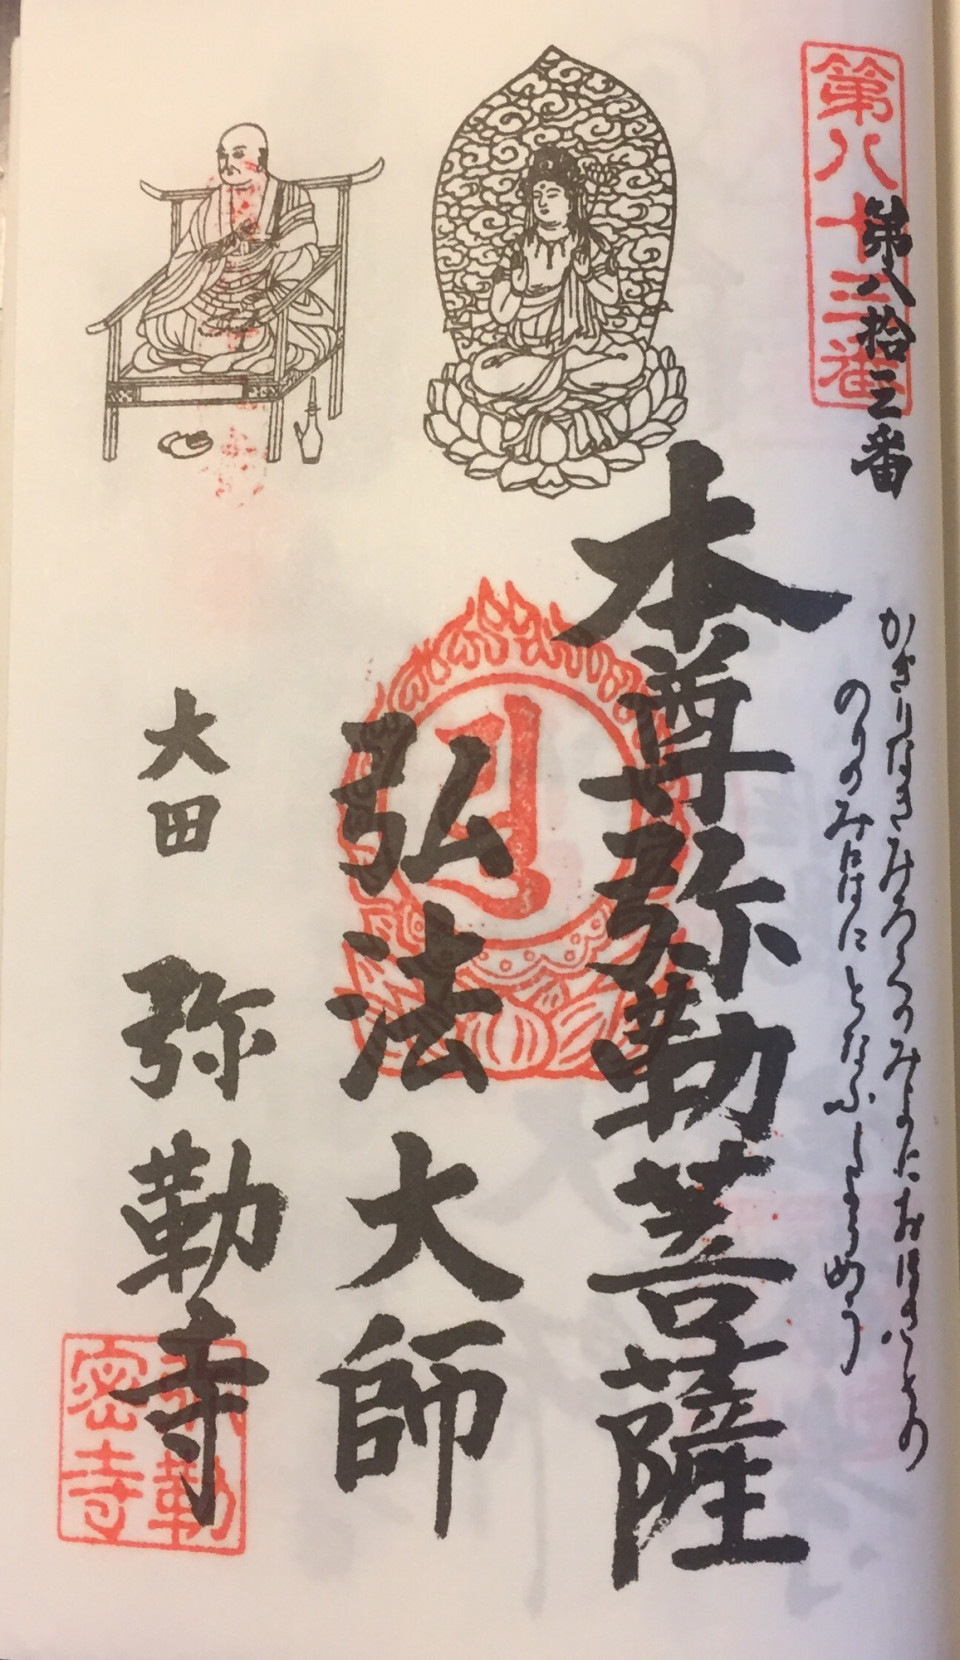 第八十三番
第八拾三番
かぎりなきみろくのみよにおほしとの
のりのみはなにとなふしるめう
本尊弥勒菩薩
弘法大師
大田 弥勒寺
弥勒
密寺